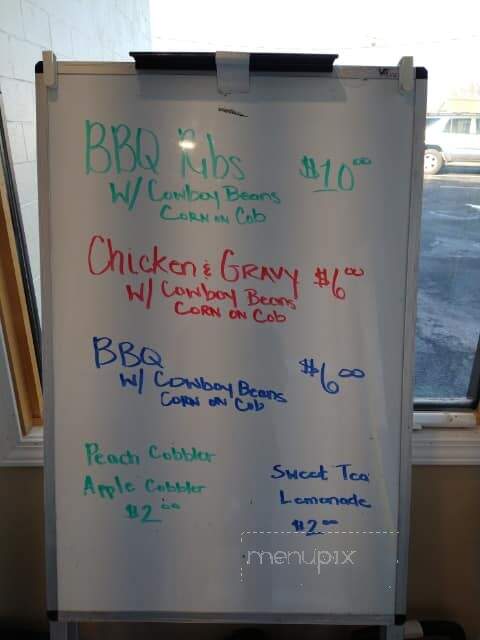 BBQ Ribs $10.00
W/ Cowboy Beans
Corn on Cob
Chicken & Gravy $6.00
W/ Cowboy Beans
Corn on Cob
BBQ $6.00
W/ Cowboy Beans
Corn on Cob
Peach Cobbler
Apple Cobbler
$2.00
Sweet Tea
Lemonade
$2.00
menupix